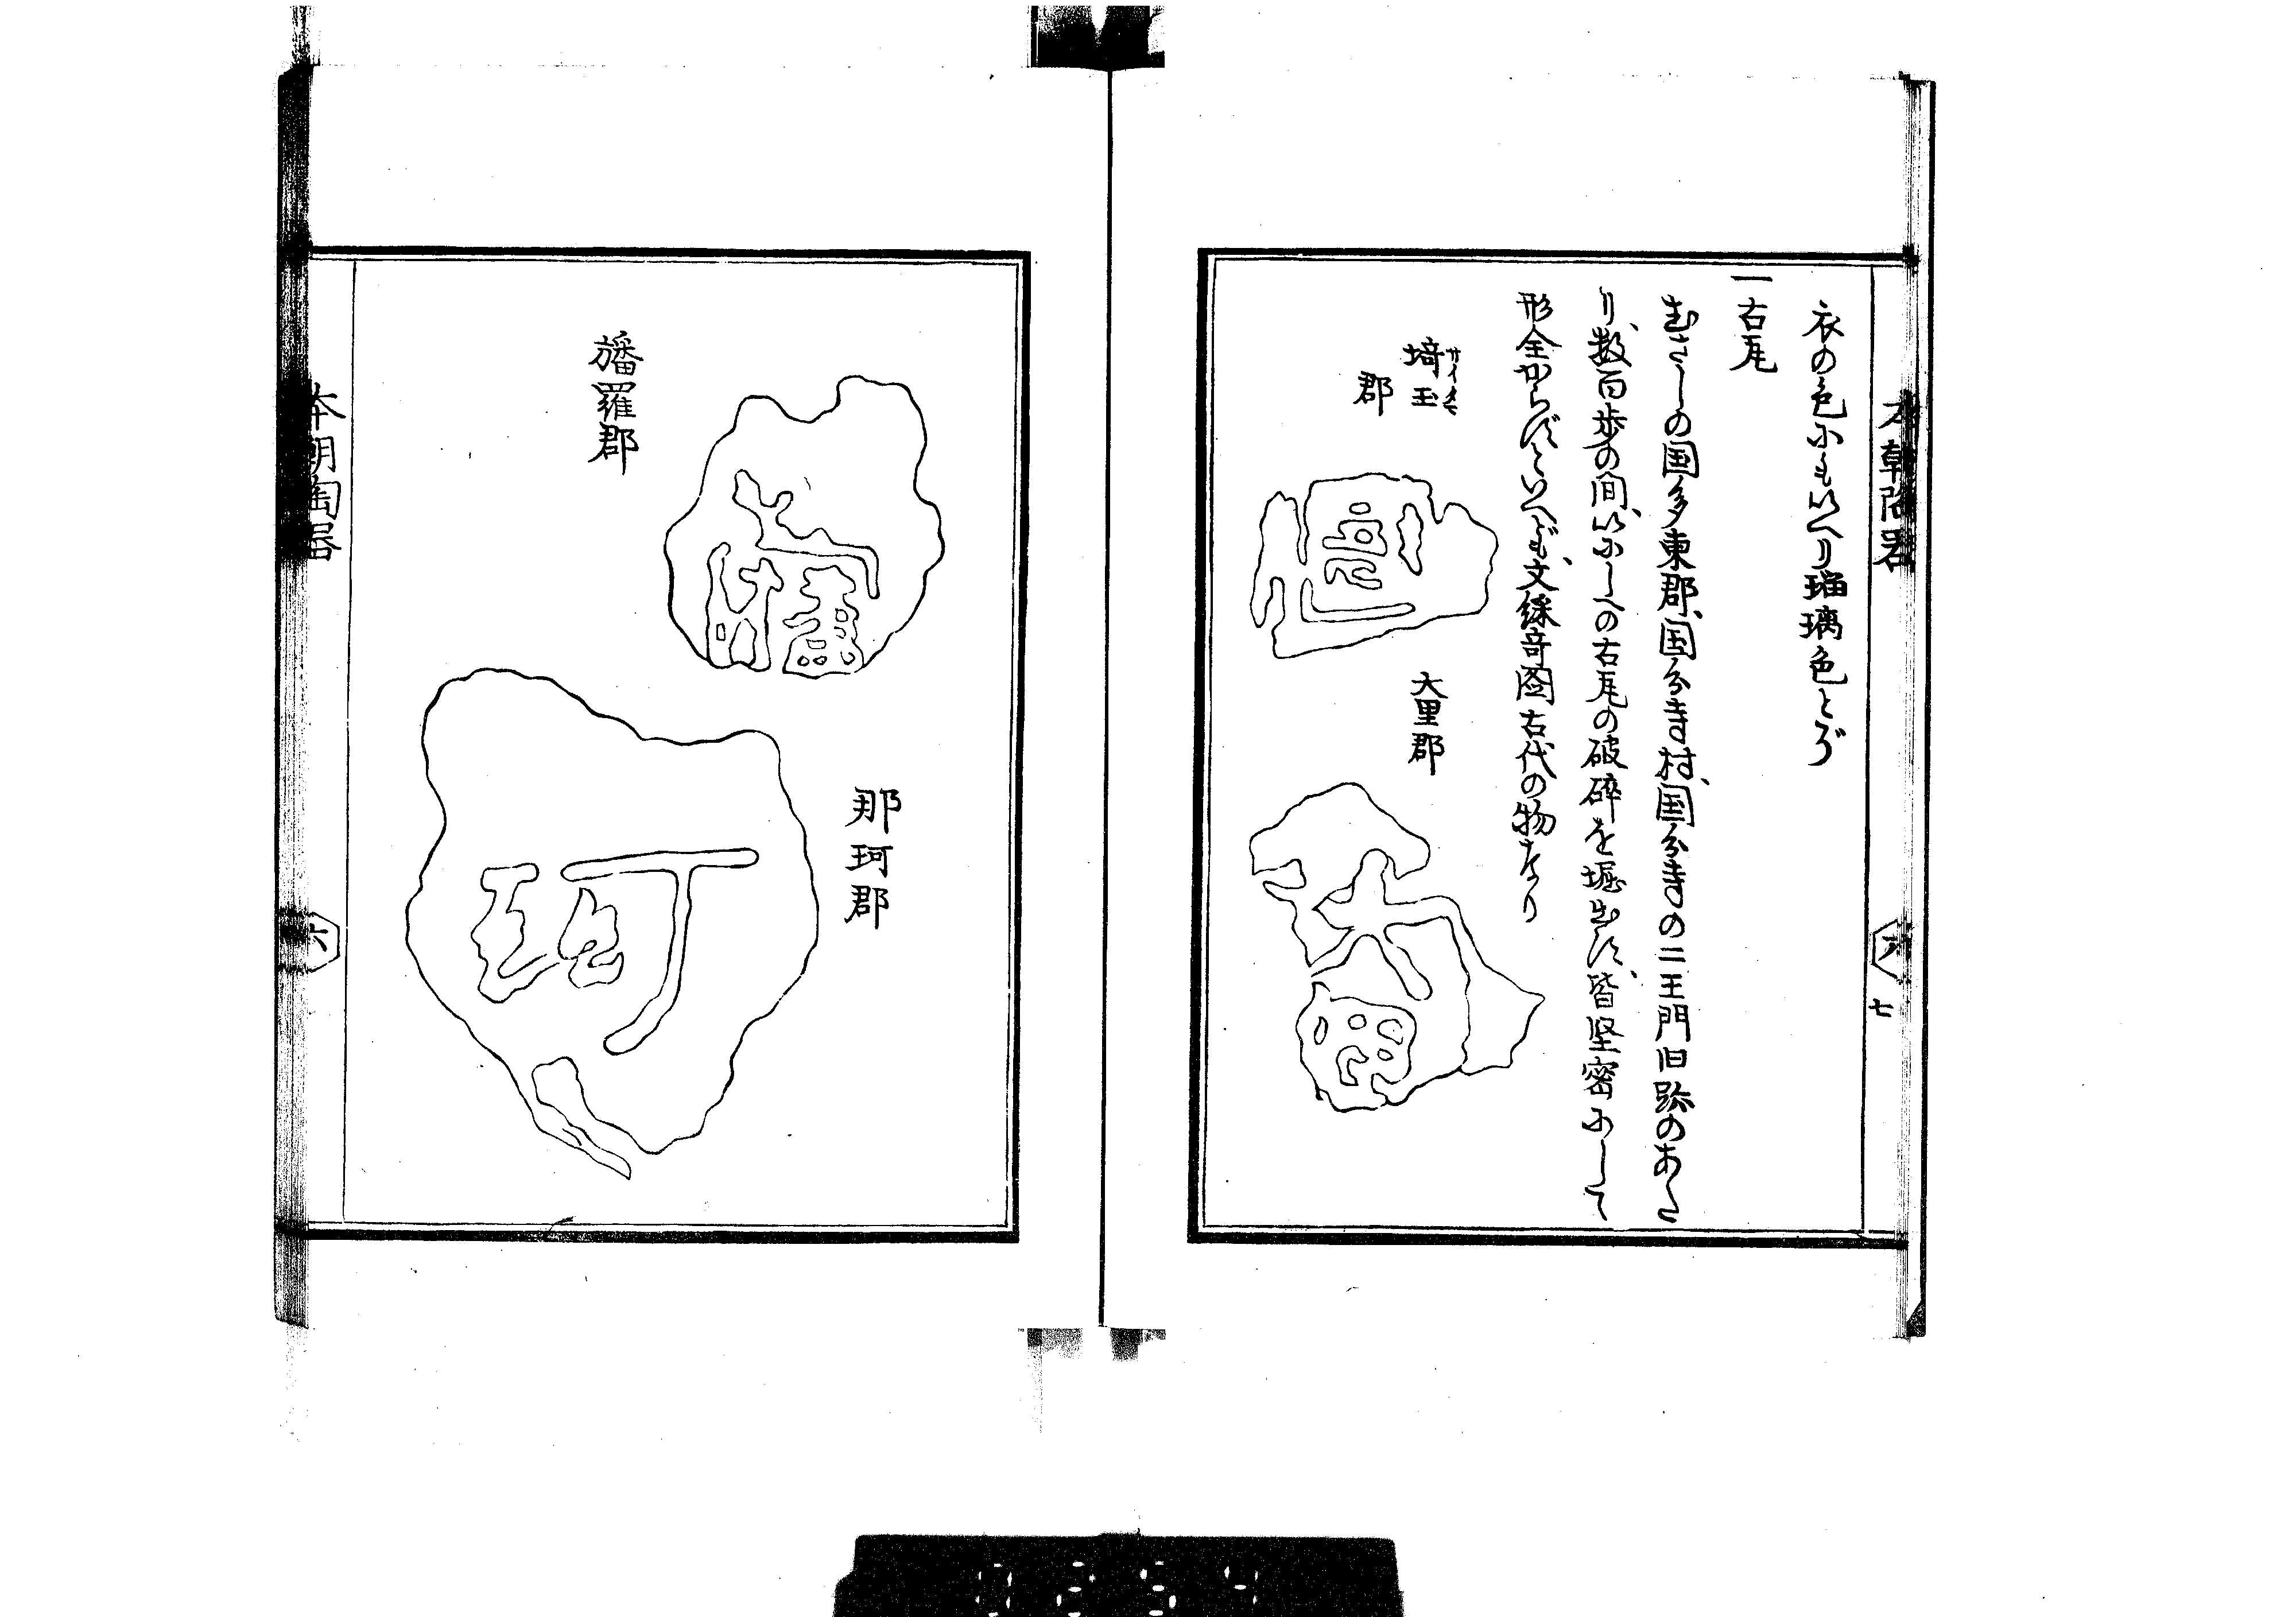 本朝陶器
六
七
衣の色にもいへり瑠璃色とぞ
一古瓦
むさしの国多東郡、国分寺村、国分寺の二王門旧跡のあた
り、数百歩の間、いにしへの古瓦の破砕を堀出す、皆堅密にして
形全からずといへども、文緑奇図古代の物なり
サイタマ
埼玉
郡
大里郡
那珂郡
旛羅郡
本朝陶器
六